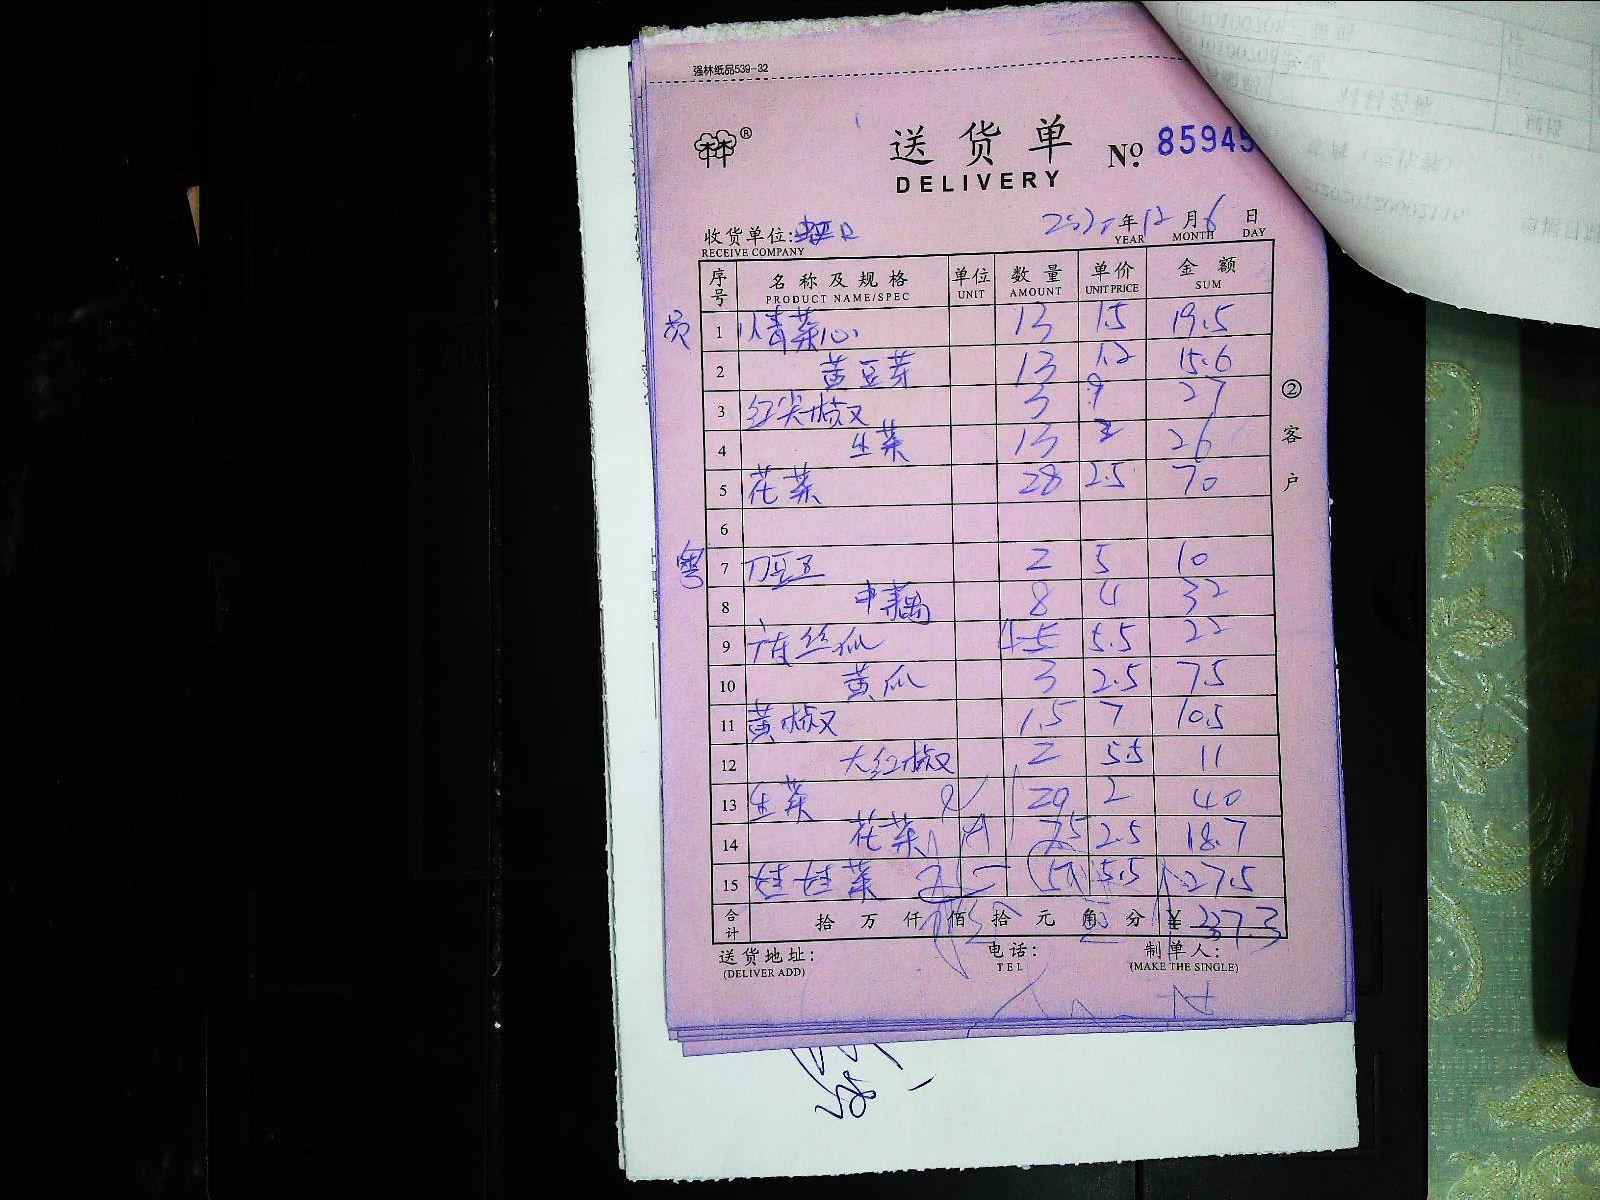 强林纸品539-32
林林®
送货单 № 85945
DELIVERY
收货单位: 年 12 月 6 日
RECEIVE COMPANY YEAR MONTH DAY
序号 名称及规格 单位 数量 单价 金额
PRODUCT NAME/SPEC UNIT AMOUNT UNIT PRICE SUM
员 1 小青菜心 13 1.5 19.5
2 黄豆芽 13 1.2 15.6
3 红尖椒 3 9 27
4 生菜 13 2 26
5 花菜 28 2.5 70
6
粤 7 刀豆 2 5 10
8 8 4 32
9 丝瓜 4 5.5 22
10 黄瓜 3 2.5 7.5
11 黄椒 1.5 7 10.5
12 大红椒 2 5.5 11
13 生菜 20 2 40
14 花菜 7.5 2.5 18.7
15 娃娃菜 5 5.5 27.5
合计 拾 万 仟 佰 拾 元 角 分 ¥ 337.3
送货地址: 电话: 制单人:
(DELIVER ADD) TEL (MAKE THE SINGLE)
②客户